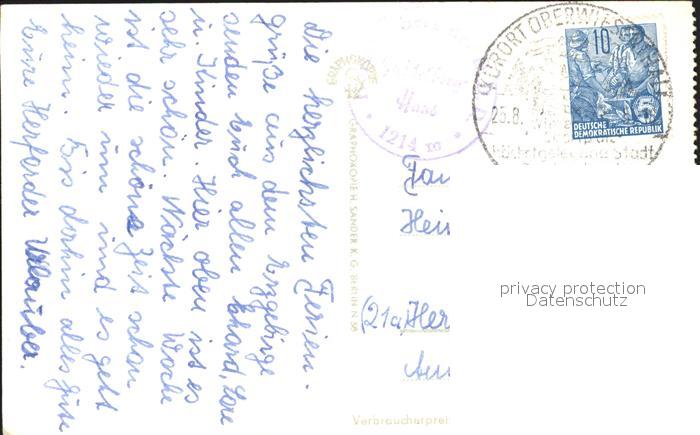 Die herzlichsten Ferien-
grüße aus dem Erzgebirge
senden Euch allen Erhard, Lore
u. Kinder. Hier oben ist es
sehr schön. Nächste Woche
ist die schöne Zeit schon
wieder um und es geht
heim. Bis dahin alles Gute
Eure Herforder Urlauber.
GRAPHOKOPIE
GRAPHOKOPIE H. SANDER K. G. BERLIN N 58
Haus
1214 m
KURORT OBERWIESENTHAL
25.8.
Höchstgelegene Stadt
10
5
DEUTSCHE
DEMOKRATISCHE REPUBLIK
Fam
Hein
(21a) Her
privacy protection
Datenschutz
Verbraucherpreis